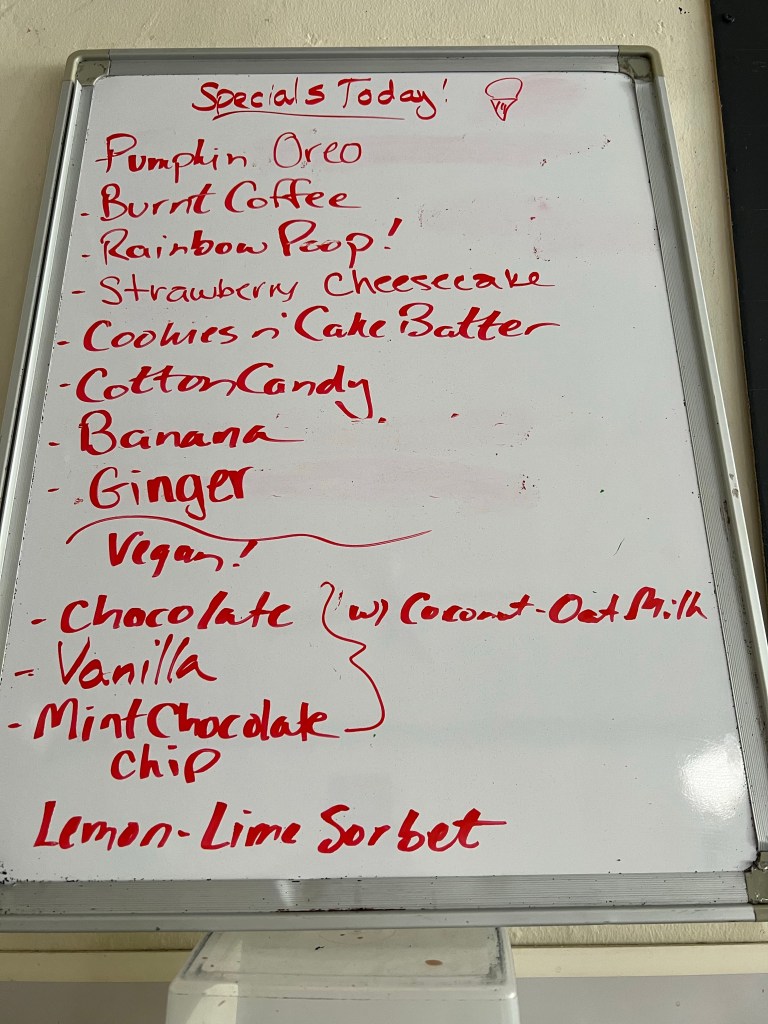 Specials Today!
Pumpkin Oreo
- Burnt Coffee
- Rainbow Poop!
- Strawberry Cheesecake
- Cookies n' Cake Batter
- Cotton Candy
- Banana
- Ginger
Vegan!
- Chocolate w/ Coconut-Oat Milk
- Vanilla
- Mint Chocolate
Chip
Lemon-Lime Sorbet